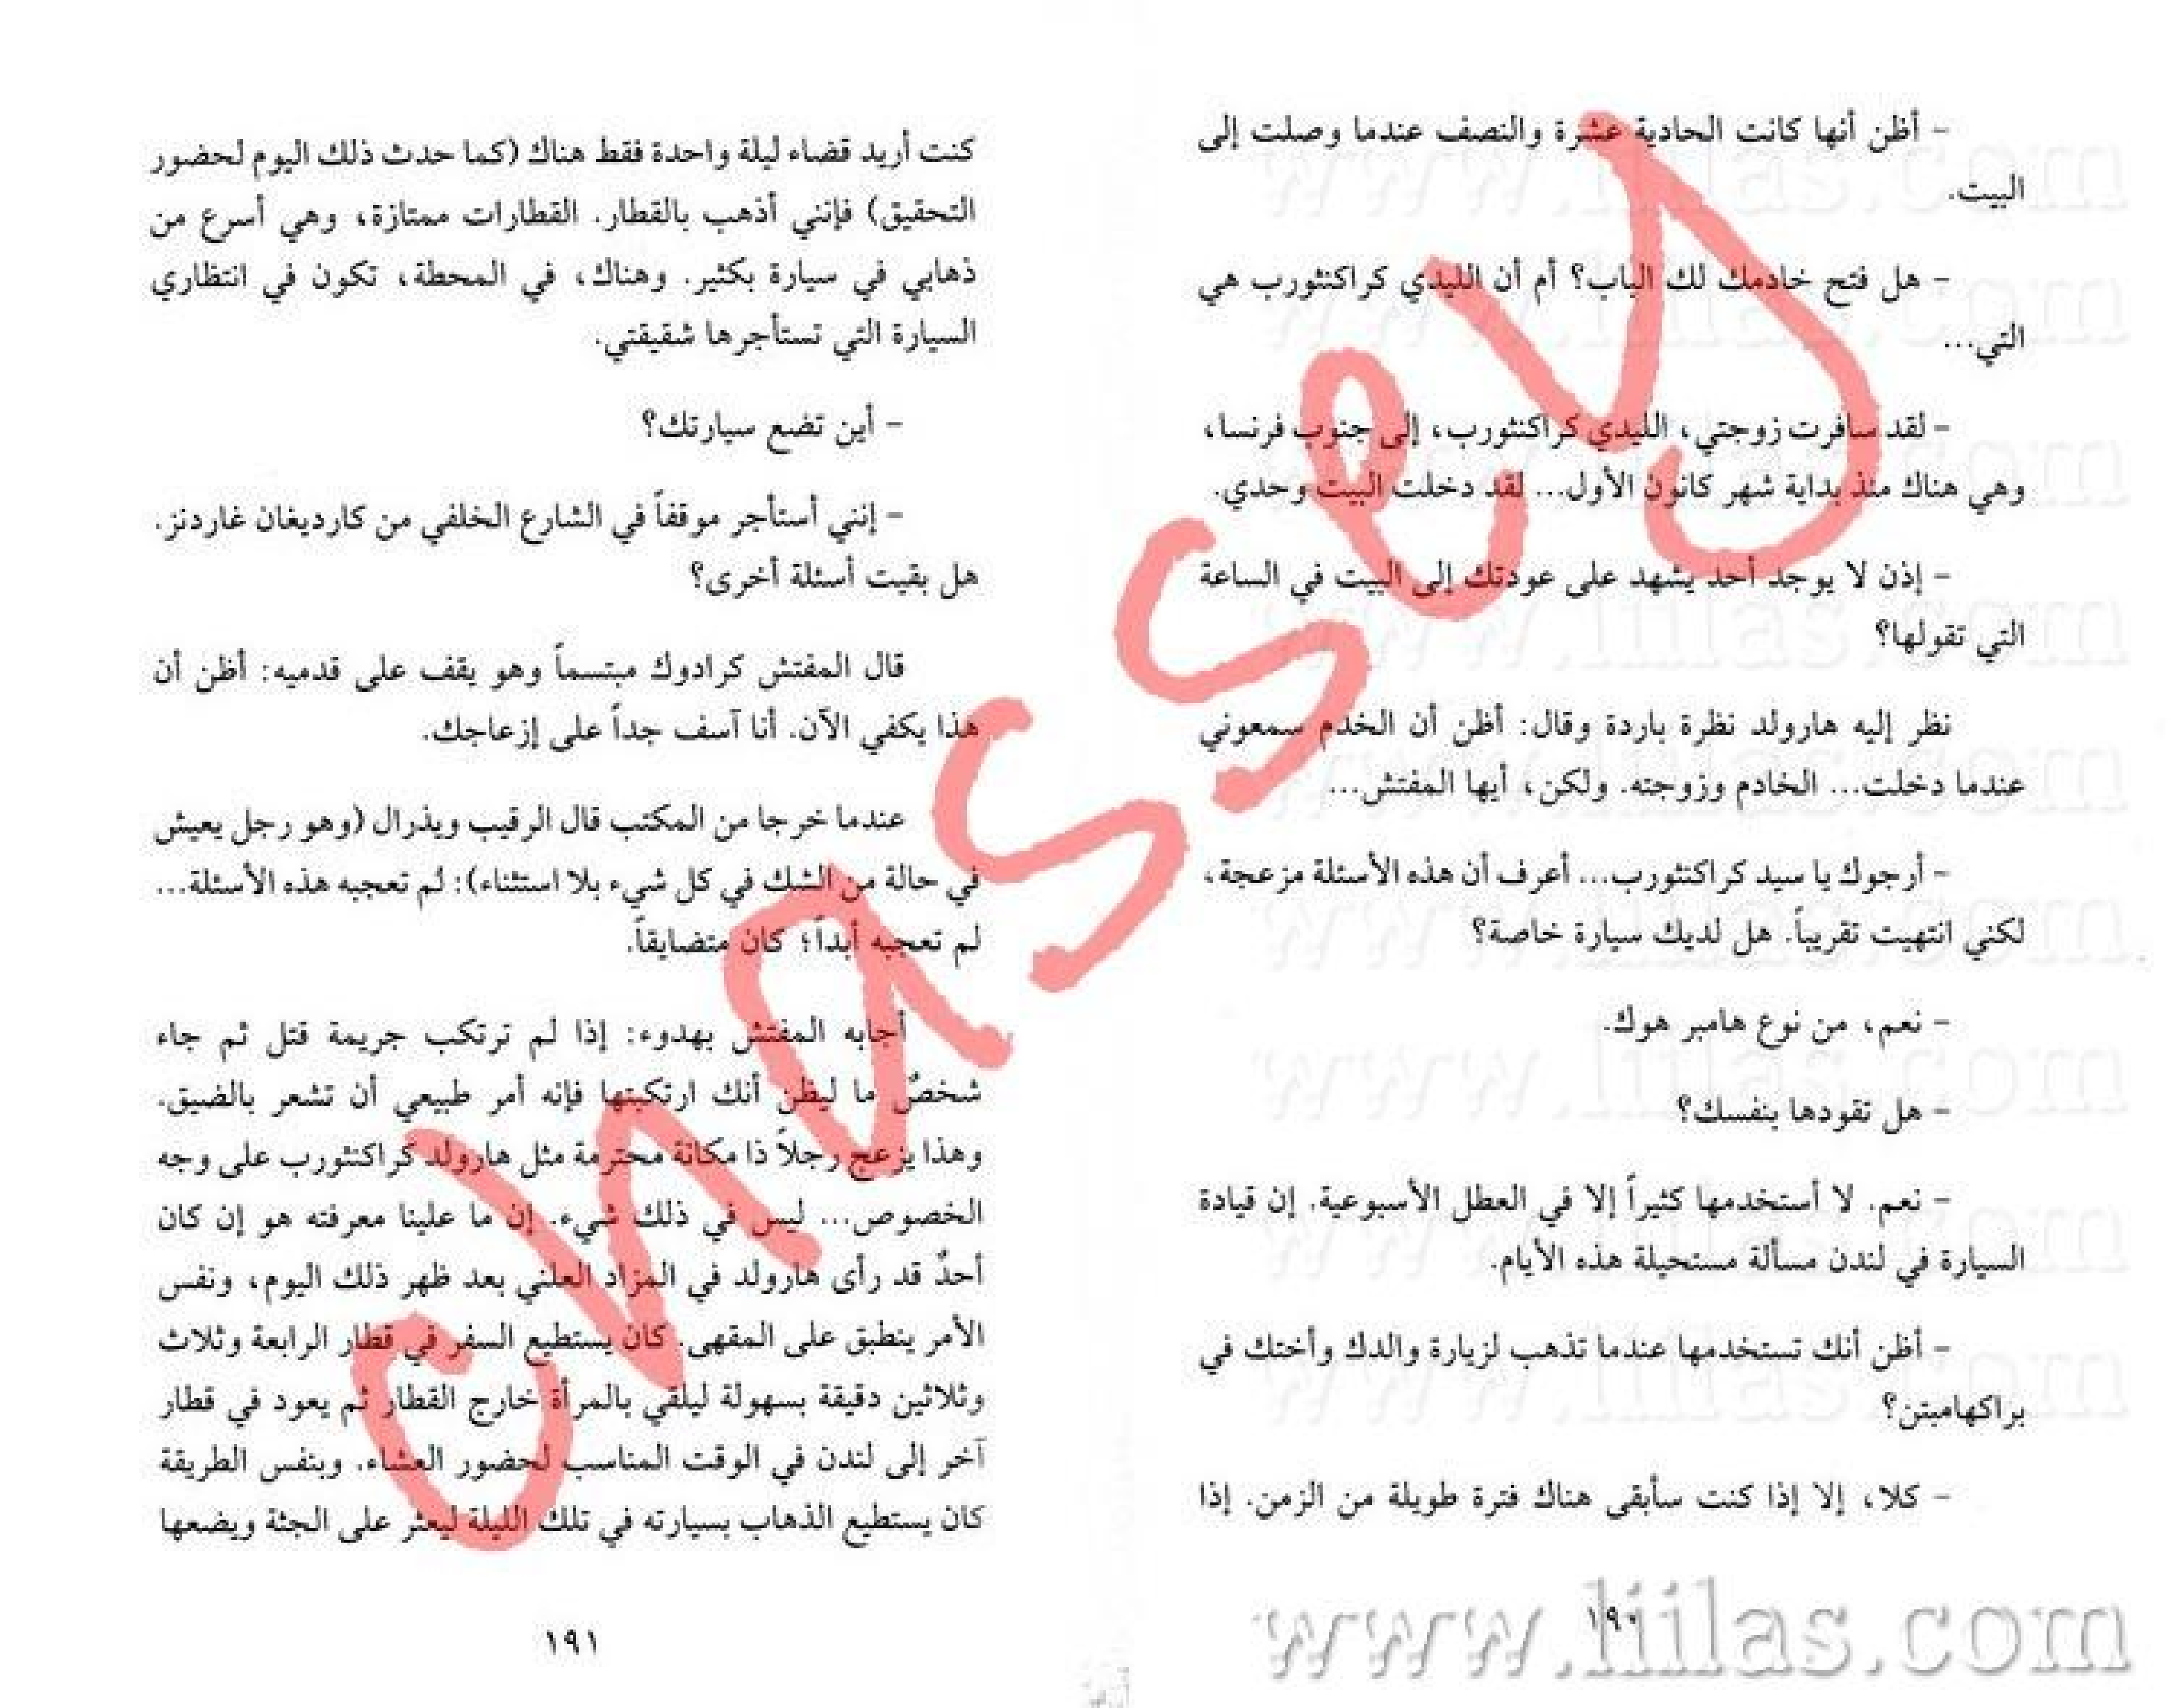 - أظن أنها كانت الحادية عشرة والنصف عندما وصلت إلى
البيت.
- هل فتح خادمك لك الباب؟ أم أن الليدي كراكنثورب هي
التي...
- لقد سافرت زوجتي، الليدي كراكنثورب، إلى جنوب فرنسا،
وهي هناك منذ بداية شهر كانون الأول... لقد دخلت البيت وحدي.
- إذن لا يوجد أحد يشهد على عودتك إلى البيت في الساعة
التي تقولها؟
نظر إليه هارولد نظرة باردة وقال: أظن أن الخدم سمعوني
عندما دخلت... الخادم وزوجته. ولكن، أيها المفتش...
- أرجوك يا سيد كراكنثورب... أعرف أن هذه الأسئلة مزعجة،
لكني انتهيت تقريباً. هل لديك سيارة خاصة؟
- نعم، من نوع هامبر هوك.
- هل تقودها بنفسك؟
- نعم. لا أستخدمها كثيراً إلا في العطل الأسبوعية. إن قيادة
السيارة في لندن مسألة مستحيلة هذه الأيام.
- أظن أنك تستخدمها عندما تذهب لزيارة والدك وأختك في
براكهامبتن؟
- كلا، إلا إذا كنت سأبقى هناك فترة طويلة من الزمن. إذا
١٩٠
كنت أريد قضاء ليلة واحدة فقط هناك (كما حدث ذلك اليوم لحضور
التحقيق) فإنني أذهب بالقطار. القطارات ممتازة، وهي أسرع من
ذهابي في سيارة بكثير. وهناك، في المحطة، تكون في انتظاري
السيارة التي تستأجرها شقيقتي.
- أين تضع سيارتك؟
- إنني أستأجر موقفاً في الشارع الخلفي من كارديغان غاردنز.
هل بقيت أسئلة أخرى؟
قال المفتش كرادوك مبتسماً وهو يقف على قدميه: أظن أن
هذا يكفي الآن. أنا آسف جداً على إزعاجك.
عندما خرجا من المكتب قال الرقيب ويذرال (وهو رجل يعيش
في حالة من الشك في كل شيء بلا استثناء): لم تعجبه هذه الأسئلة...
لم تعجبه أبداً؛ كان متضايقاً.
أجابه المفتش بهدوء: إذا لم ترتكب جريمة قتل ثم جاء
شخصٌ ما ليظن أنك ارتكبتها فإنه أمر طبيعي أن تشعر بالضيق.
وهذا يزعج رجلاً ذا مكانة محترمة مثل هارولد كراكنثورب على وجه
الخصوص... ليس في ذلك شيء. إن ما علينا معرفته هو إن كان
أحدٌ قد رأى هارولد في المزاد العلني بعد ظهر ذلك اليوم، ونفس
الأمر ينطبق على المقهى. كان يستطيع السفر في قطار الرابعة وثلاث
وثلاثين دقيقة بسهولة ليلقي بالمرأة خارج القطار ثم يعود في قطار
آخر إلى لندن في الوقت المناسب لحضور العشاء. وبنفس الطريقة
كان يستطيع الذهاب بسيارته في تلك الليلة ليعثر على الجثة ويضعها
١٩١
www.liilas.com